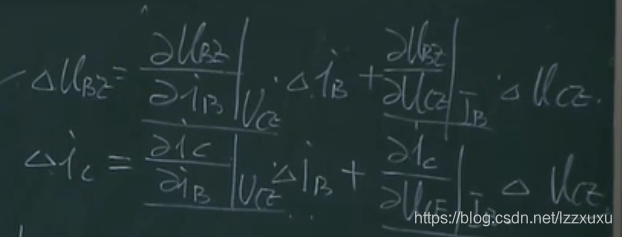 ΔU_BZ = ∂U_BZ/∂i_B|U_CZ · Δi_B + ∂U_BZ/∂U_CZ|I_B · ΔU_CZ.
Δi_C = ∂i_C/∂i_B|U_CZ Δi_B + ∂i_C/∂U_CE|I_B Δ U_CZ.
https://blog.csdn.net/lzzxuxu